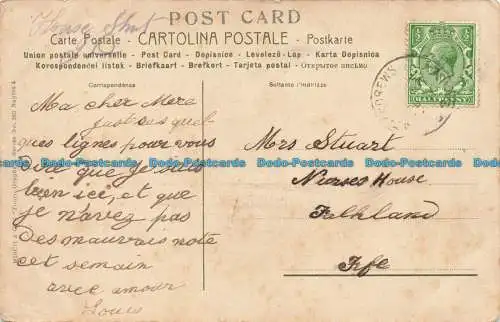 POST CARD
Carte Postale - CARTOLINA POSTALE - Postkarte
Union postale universelle - Post Card - Dopisnice - Levelezö-Lap - Karta Dopisnica
Korespondenční lístek - Briefkaart - Brefkort - Tarjeta postal - Открытое письмо
Corrispondenza
Soltanto l'indirizzo
Ma cher Mere
just des quel
ques lignes pour vous
dire que je suis
bien ici, et que
je n'avez pas
des mauvais note
cet semain
avec amour
Louis
Mrs Stuart
Nurses House
Falkland
Fife
HALF PENNY
ANDREWS
Dodo-Postcards Dodo-Postcards Dodo-Postcards Dodo-Postcards Dodo-Postcards